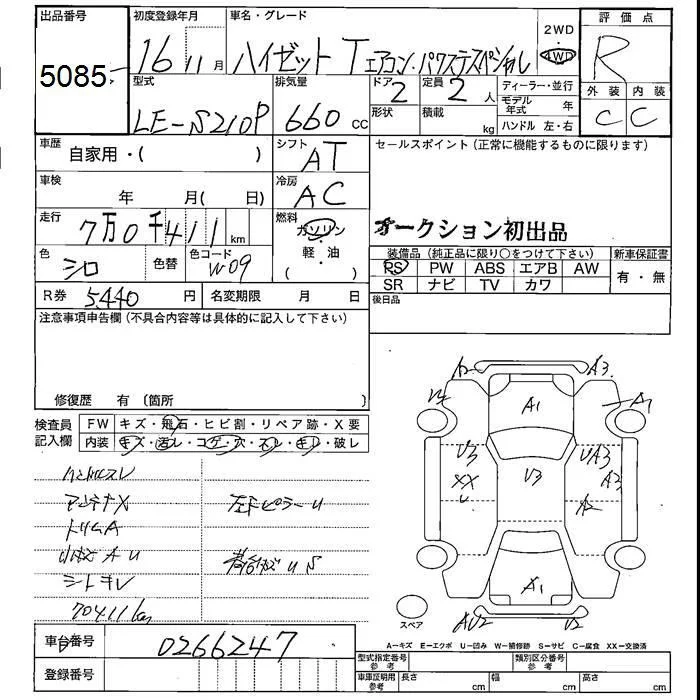 出品番号 初度登録年月 車名・グレード 2WD 評価点
5085 16 11月 ハイゼットT エアコン・パワステスペシャル 4WD R
型式 排気量 ドア 2 定員 2人 ディーラー・並行 外装 内装
LE-S210P 660cc 形状 積載 kg モデル年式 年 C C
ハンドル 左・右
車歴 自家用・( ) シフト AT セールスポイント(正常に機能するものに限ります)
車検 年 月( 日) 冷房 AC
走行 7万0千411km 燃料 ガソリン・軽油 ( ) オークション初出品
色 シロ 色替 色コード W09 装備品(純正品に限り○をつけて下さい) 新車保証書
PS PW ABS エアB AW 有・無
R券 5440円 名変期限 月 日 SR ナビ TV カワ
後日品
注意事項申告欄(不具合内容等は具体的に記入して下さい)
修復歴 有(箇所 )
検査員記入欄 FW キズ・飛石・ヒビ割・リペア跡・X要
内装 キズ・汚レ・コゲ・穴・スレ・キレ・破レ
ハンドルスレ
アンテナX 左ドピラーU
トリムA
A U
シートキレ
70411km
A2 A3 A1 A1
V3 XX V3 UA3 A3 A2
A1 AU2 U2
スペア
A-キズ E-エクボ U-凹み W-補修跡 S-サビ C-腐食 XX-交換済
車台番号 0266247 型式指定番号 参考 類別区分番号 参考
登録番号 車庫証明用 参考 長さ cm 幅 cm 高さ cm